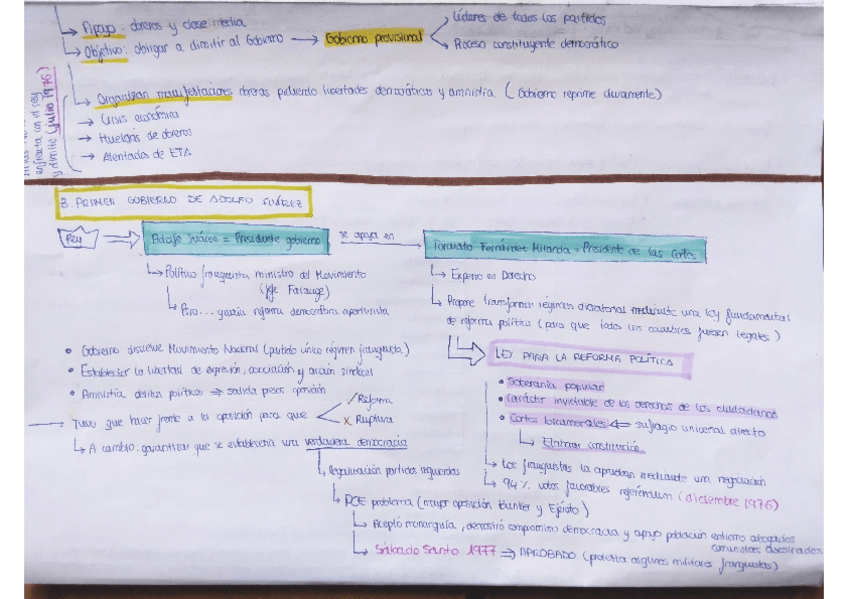 Apoyo: obreros y clase media
Objetivo: obligar a dimitir al Gobierno → Gobierno provisional
Líderes de todos los partidos
Proceso constituyente democrático
enfrenta con el rey
y dimite (julio 1976)
Organizan manifestaciones obreras pidiendo libertades democráticas y amnistía (Gobierno reprime duramente)
→ Crisis económica
→ Huelgas de obreros
→ Atentados de ETA
3. PRIMER GOBIERNO DE ADOLFO SUÁREZ
Rey
Adolfo Suárez = Presidente gobierno
se apoya en
Torcuato Fernández Miranda = Presidente de las Cortes
Político franquista ministro del Movimiento
(jefe Falange)
Pero... quería reforma democrática aperturista
Experto en Derecho
Propone transformar régimen dictatorial mediante una ley fundamental
de reforma política (para que todos los cambios fuesen legales)
LEY PARA LA REFORMA POLÍTICA
• Soberanía popular
• Carácter inviolable de los derechos de los ciudadanos
• Cortes bicamerales ⇐ sufragio universal directo
Elaborar constitución
Los franquistas la aprueban mediante una negociación
94% votos favorables referéndum (diciembre 1976)
• Gobierno disuelve Movimiento Nacional (partido único régimen franquista)
• Establecer la libertad de expresión, asociación y acción sindical
• Amnistía delitos políticos ⇒ salida presos oposición
Tuvo que hacer frente a la oposición para que
✓ Reforma
x Ruptura
A cambio, garantizar que se establecería una verdadera democracia
Legalización partidos izquierdas
PCE problema (mayor oposición Búnker y Ejército)
Aceptó monarquía, demostró compromiso democracia y apoyo población entierro abogados
comunistas asesinados
Sábado Santo 1977 ⇒ APROBADO (protesta algunos militares franquistas)